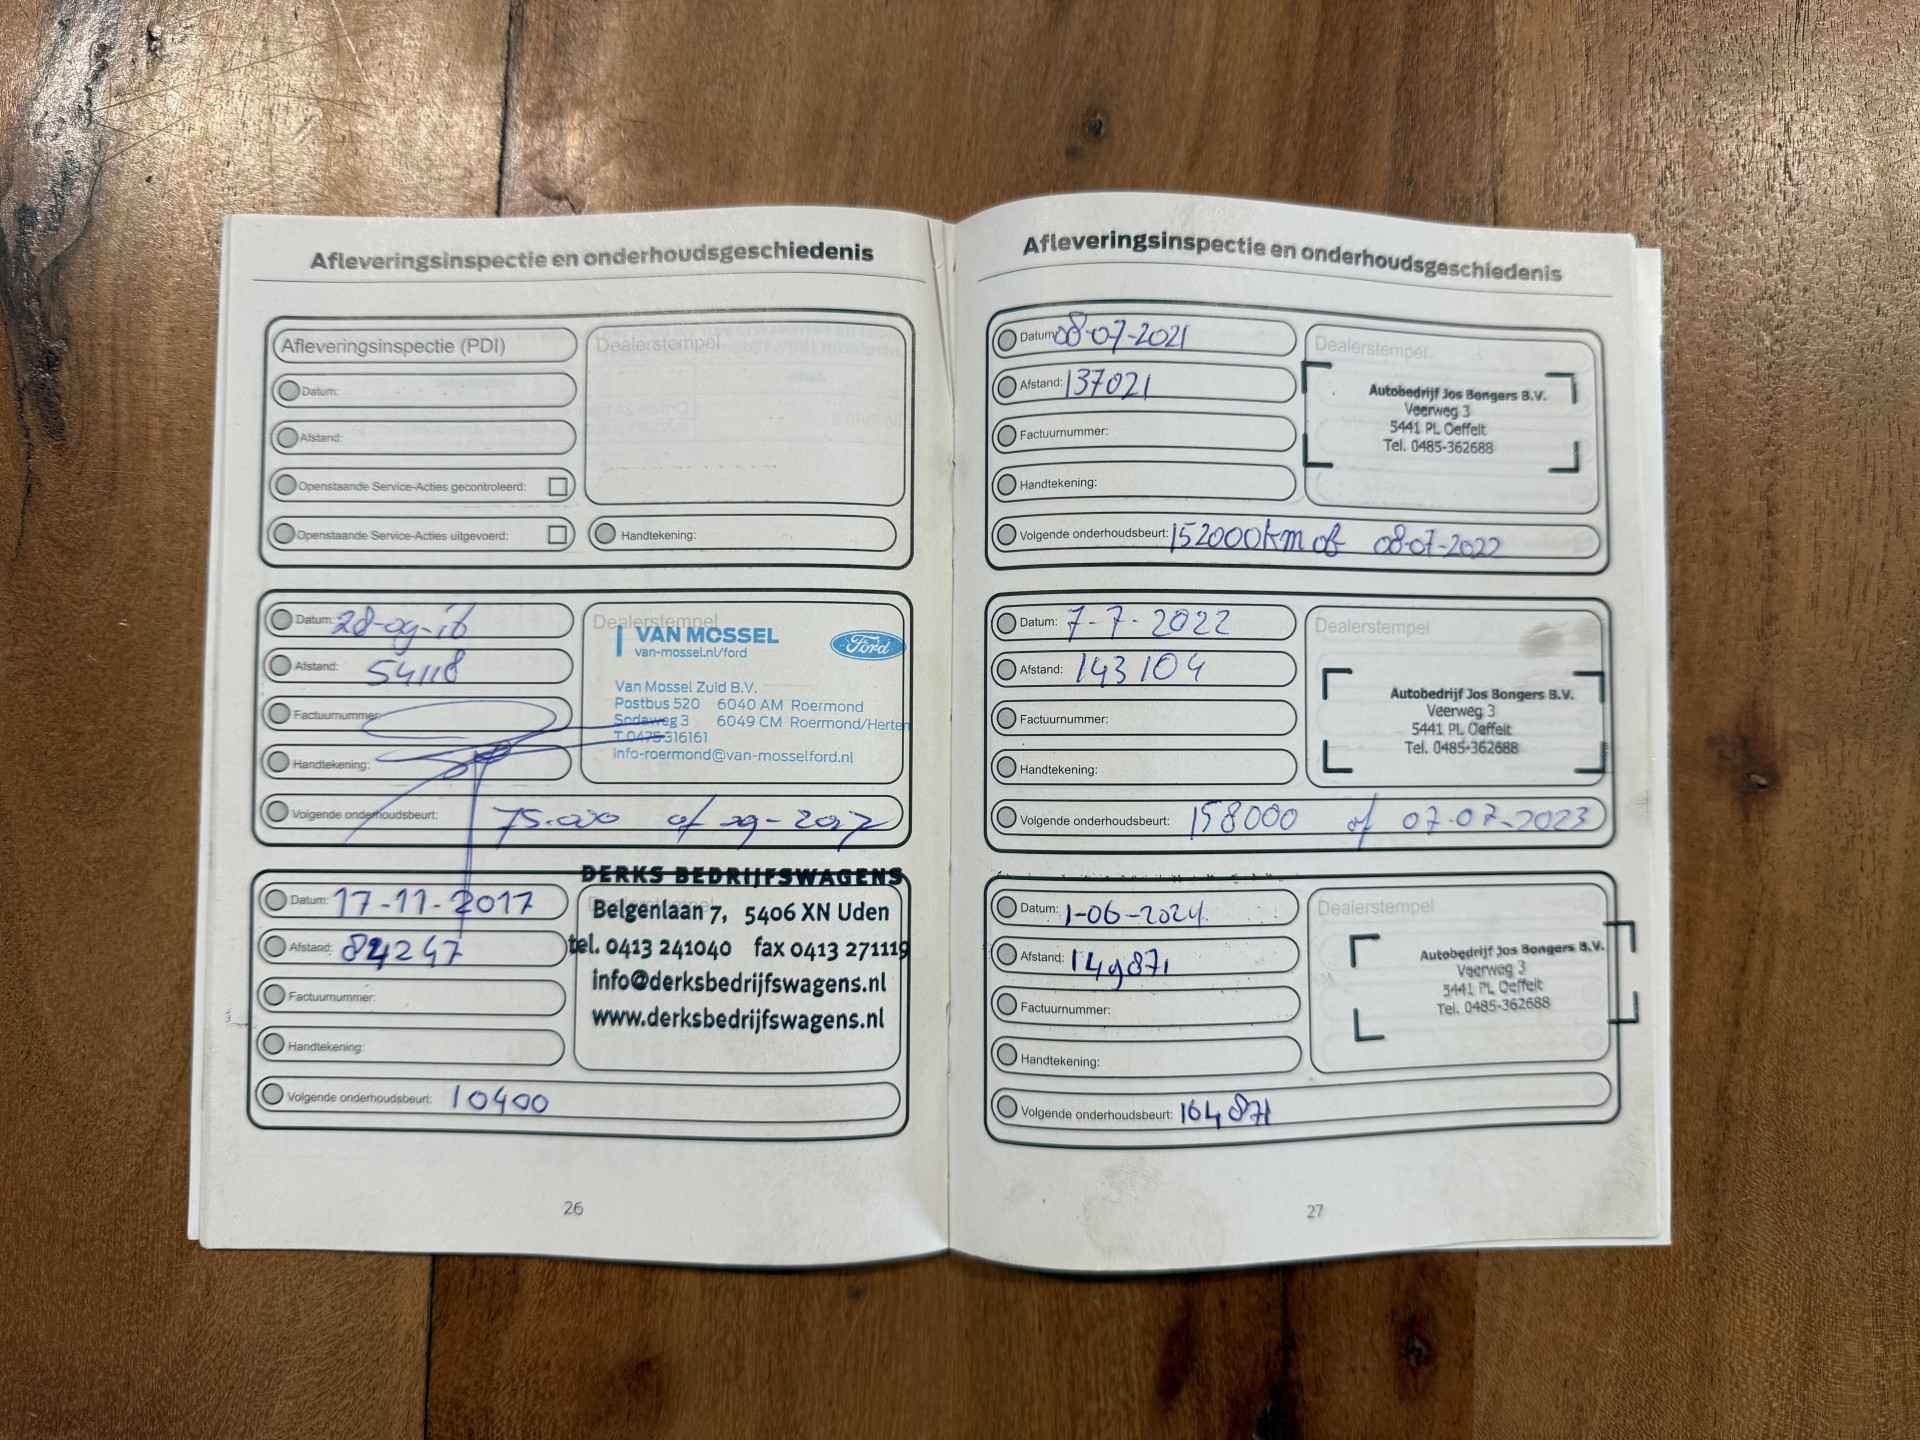 Afleveringsinspectie en onderhoudsgeschiedenis
Afleveringsinspectie (PDI)
Dealerstempel
Datum:
Afstand:
Openstaande Service-Acties gecontroleerd:
Openstaande Service-Acties uitgevoerd:
Handtekening:
Datum: 28-09-16
Afstand: 54118
Factuurnummer:
Handtekening:
Volgende onderhoudsbeurt: 75.000 of 09-2017
Dealerstempel
VAN MOSSEL
van-mossel.nl/ford
Ford
Van Mossel Zuid B.V.
Postbus 520 6040 AM Roermond
Sodaweg 3 6049 CM Roermond/Herten
T 0475 316161
info-roermond@van-mosselford.nl
Datum: 17-11-2017
Afstand: 84247
Factuurnummer:
Handtekening:
Volgende onderhoudsbeurt: 10400
DERKS BEDRIJFSWAGENS
Belgenlaan 7, 5406 XN Uden
tel. 0413 241040 fax 0413 271119
info@derksbedrijfswagens.nl
www.derksbedrijfswagens.nl
26
Afleveringsinspectie en onderhoudsgeschiedenis
Datum: 08-07-2021
Afstand: 137021
Factuurnummer:
Handtekening:
Volgende onderhoudsbeurt: 152000km of 08-07-2022
Dealerstempel
Autobedrijf Jos Bongers B.V.
Veerweg 3
5441 PL Oeffelt
Tel. 0485-362688
Datum: 7-7-2022
Afstand: 143104
Factuurnummer:
Handtekening:
Volgende onderhoudsbeurt: 158000 of 07-07-2023
Dealerstempel
Autobedrijf Jos Bongers B.V.
Veerweg 3
5441 PL Oeffelt
Tel. 0485-362688
Datum: 1-06-2024
Afstand: 149871
Factuurnummer:
Handtekening:
Volgende onderhoudsbeurt: 164871
Dealerstempel
Autobedrijf Jos Bongers B.V.
Veerweg 3
5441 PL Oeffelt
Tel. 0485-362688
27